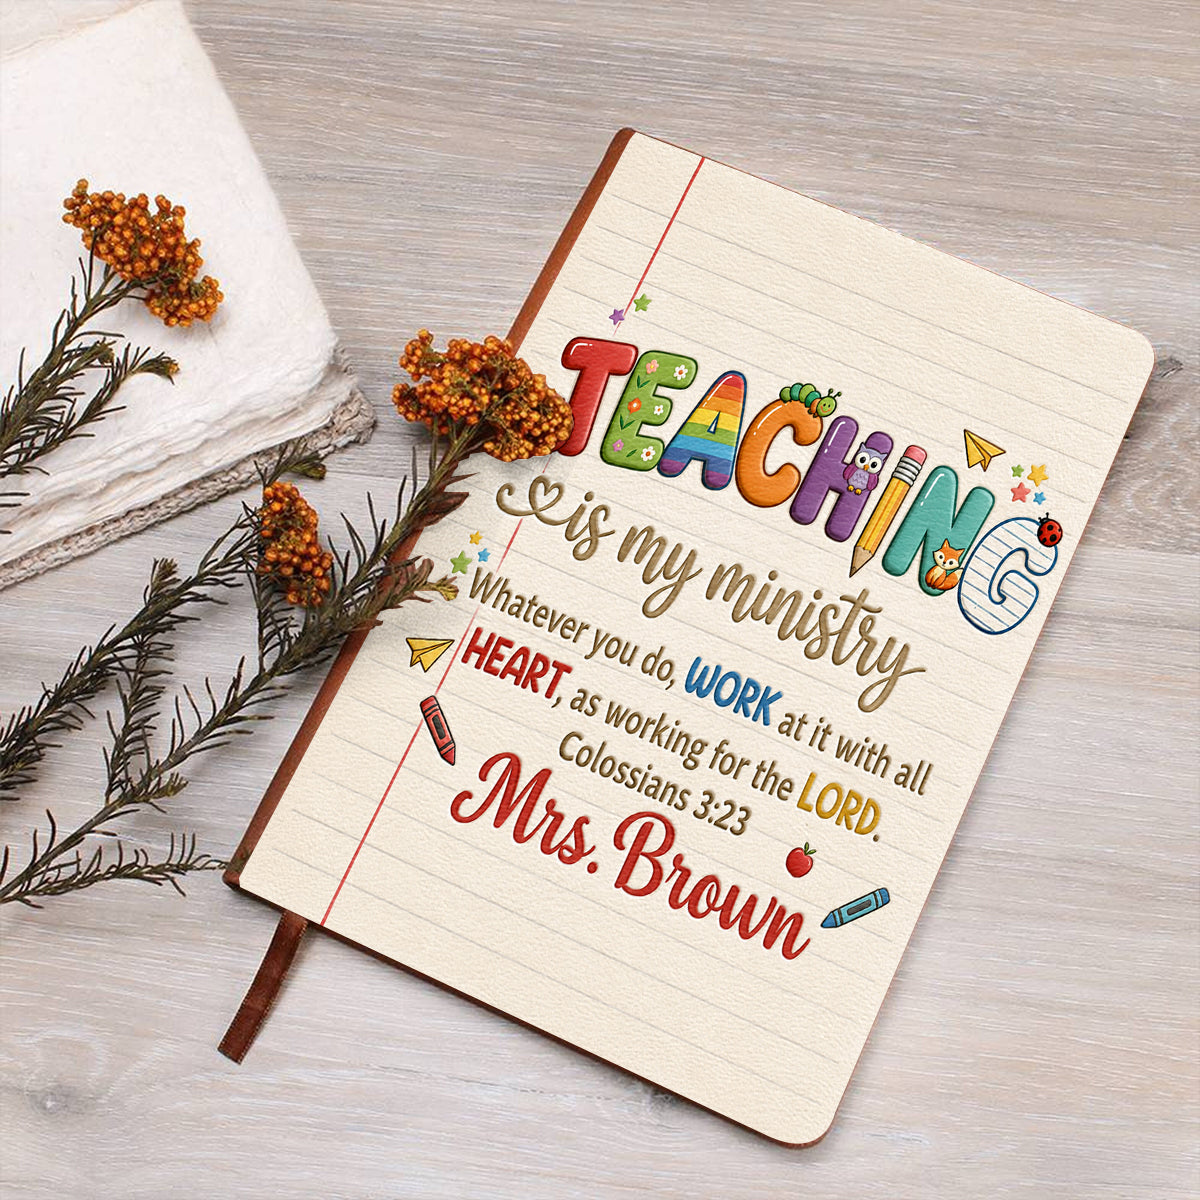 TEACHING
is my ministry
Whatever you do, WORK at it with all
HEART, as working for the LORD.
Colossians 3:23
Mrs. Brown